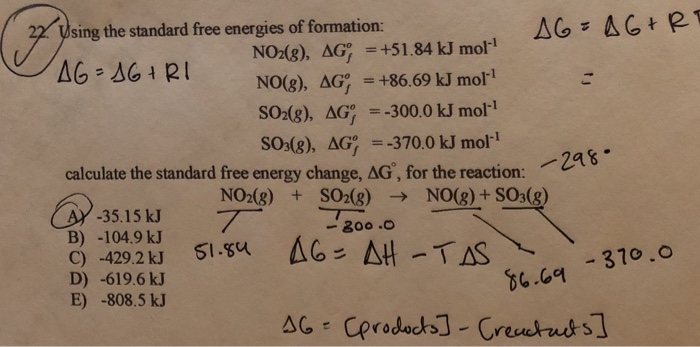 22. Using the standard free energies of formation:
ΔG = ΔG + R
NO₂(g), ΔG°f = +51.84 kJ mol⁻¹
ΔG = ΔG + RI
NO(g), ΔG°f = +86.69 kJ mol⁻¹
=
SO₂(g), ΔG°f = -300.0 kJ mol⁻¹
SO₃(g), ΔG°f = -370.0 kJ mol⁻¹
calculate the standard free energy change, ΔG°, for the reaction:
-298°
NO₂(g) + SO₂(g) → NO(g) + SO₃(g)
A) -35.15 kJ
-300.0
B) -104.9 kJ
51.84
ΔG = ΔH - TΔS
86.69
-370.0
C) -429.2 kJ
D) -619.6 kJ
E) -808.5 kJ
ΔG = [products] - [reactants]